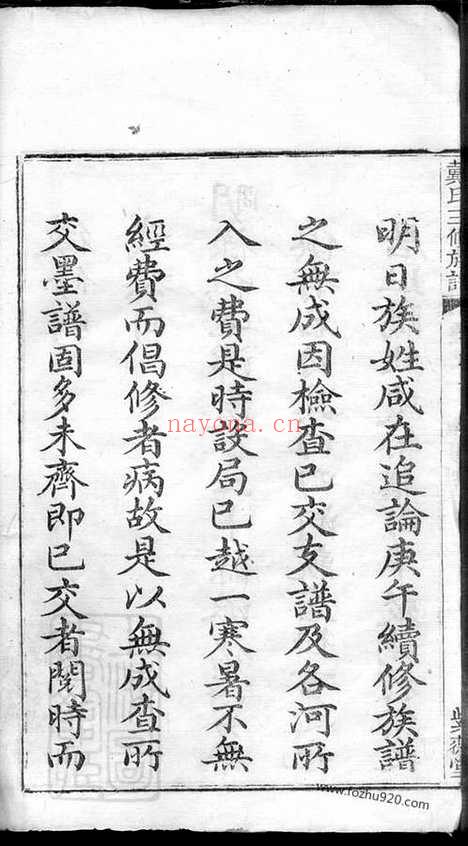 戴氏三修族譜
明日族姓咸在追論庚午續修族譜
之無成因檢查已交支譜及各河所
入之費是時設局已越一寒暑不無
經費而倡修者病故是以無成查所
交墨譜固多未齊即已交者閱時而
nayona.cn
www.fozhu920.com